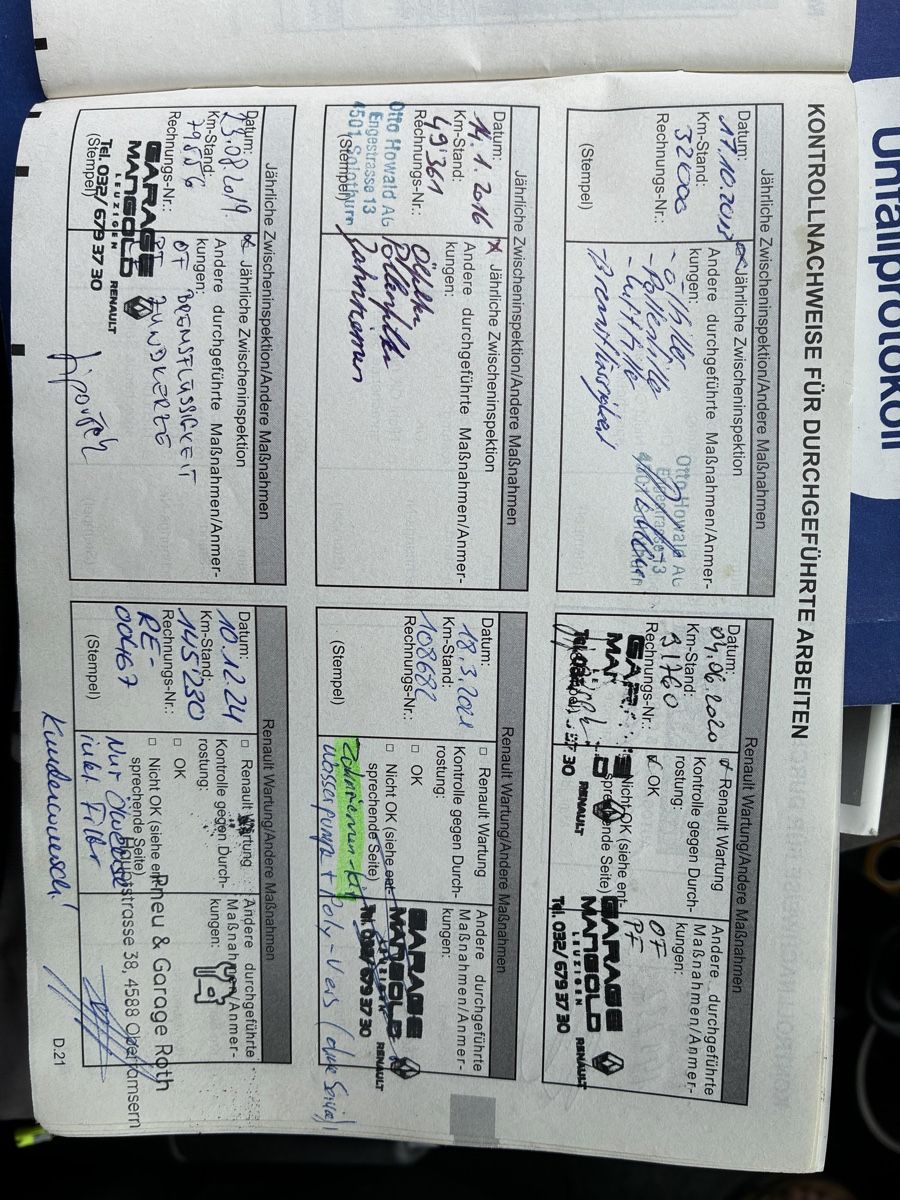 Unfallprotokoll
KONTROLLNACHWEISE FÜR DURCHGEFÜHRTE ARBEITEN
Jährliche Zwischeninspektion/Andere Maßnahmen
Datum:
17.10.2015
Km-Stand:
32000
Rechnungs-Nr.:
(Stempel)
Jährliche Zwischeninspektion
Andere durchgeführte Maßnahmen/Anmer-
kungen:
- Ölfilter
- Pollenfilter
- Luftfilter
- Bremsflüssigkeit
Otto Howald AG
Engestrasse 13
Renault Wartung/Andere Maßnahmen
Datum:
04.06.2020
Km-Stand:
91760
Rechnungs-Nr.:
(Stempel)
Renault Wartung
Kontrolle gegen Durch-
rostung:
OK
Nicht OK (siehe ent-
sprechende Seite)
Andere durchgeführte
Maßnahmen/Anmer-
kungen:
OF
PF
GARAGE
MANGOLD
LEUZIGEN
RENAULT
Tel. 032/ 679 37 30
Jährliche Zwischeninspektion/Andere Maßnahmen
Datum:
14.1.2016
Km-Stand:
49361
Rechnungs-Nr.:
Otto Howald AG
Engestrasse 13
4501 Solothurn
(Stempel)
x Jährliche Zwischeninspektion
Andere durchgeführte Maßnahmen/Anmer-
kungen:
Zahnriemen
Renault Wartung/Andere Maßnahmen
Datum:
18.3.2021
Km-Stand:
108682
Rechnungs-Nr.:
(Stempel)
Renault Wartung
Kontrolle gegen Durch-
rostung:
OK
Nicht OK (siehe ent-
sprechende Seite)
Andere durchgeführte
Maßnahmen/Anmer-
kungen:
GARAGE
MANGOLD
RENAULT
Tel. 032/ 679 37 30
Zahnriemen-Kit
Wasserpumpe + Poly-V
Jährliche Zwischeninspektion/Andere Maßnahmen
Datum:
23.08.2019
Km-Stand:
79886
Rechnungs-Nr.:
GARAGE
MANGOLD
LEUZIGEN
RENAULT
Tel. 032/ 679 37 30
(Stempel)
x Jährliche Zwischeninspektion
Andere durchgeführte Maßnahmen/Anmer-
kungen:
OF BREMSFLÜSSIGKEIT
PF ZÜNDKERZE
Renault Wartung/Andere Maßnahmen
Datum:
10.12.24
Km-Stand:
145230
Rechnungs-Nr.:
RE-
00467
(Stempel)
Renault Wartung
Kontrolle gegen Durch-
rostung:
OK
Nicht OK (siehe ent-
sprechende Seite)
Andere durchgeführte
Maßnahmen/Anmer-
kungen:
Pneu & Garage Roth
Hauptstrasse 38, 4588 Oberramsern
Nur Ölwechsel
inkl. Filter
Kundenwunsch!
D.21